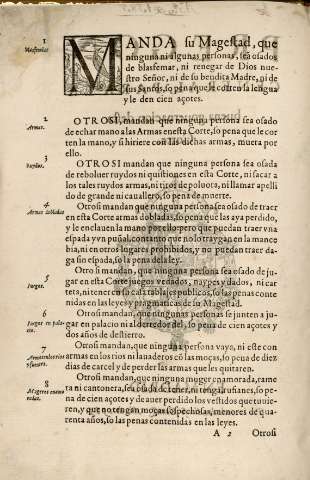 1
Maldicientes
MANDA su Magestad, que
ninguna ni algunas personas, sea osados
de blasfemar, ni renegar de Dios nue-
stro Señor, ni de su bendita Madre, ni de
sus Santos, so pena que le corten la lengua
y le den cien açotes.
2
Armas.
OTROSI, mandan que ninguna persona sea osado
de echar mano a las Armas en esta Corte, so pena que le cor
ten la mano, y si hiriere con las dichas armas, muera por
ello.
3
Ruydos.
OTROSI mandan que ninguna persona sea osada
de reboluer ruydos ni quistiones en esta Corte, ni sacar a
los tales ruydos armas, ni tiro de poluora, ni llamar apelli
do de grande ni cauallero, so pena de muerte.
4
Armas dobladas
Otrosi mandan que ninguna persona sea osado de traer
en esta Corte armas dobladas, so pena que las aya perdido,
y le enclauen la mano por ello pero que puedan traer vna
espada y vn puñal, contanto que no lo traygan en la mance
bia, ni en otros lugares prohibidos, y no puedan traer da-
ga sin espada, so la pena de la ley.
5
Juegos.
Otrosi mandan, que ninguna persona sea osado de ju-
gar en esta Corte juegos vedados, naypes y dados, ni car
teta, ni tener en su casa tablajes publicos, so las penas conte
nidas en las leyes y pragmaticas de su Magestad.
6
Juegos en pala-
cio.
Otrosi mandan, que ningunas personas se junten a ju-
gar en palacio ni al derredor del, so pena de cien açotes y
dos años de destierro.
7
Otrosi mandan, que ninguna persona vaya, ni este con
armas en los rios ni lanaderos cõ las moças, so pena de diez
dias de carcel y de perder las armas que les quitaren.
8
Mugeres enamo
radas.
Otrosi mandan, que ninguna muger enamorada, rame
ra ni cantonera, sea osada de tener, ni tengan rufianes, so pe-
na de cien açotes y de auer perdido los vestidos que tuuie-
ren, y que no tengan moças sospechosas, menores de quarenta
años, so las penas contenidas en las leyes.
A 2
Otrosi